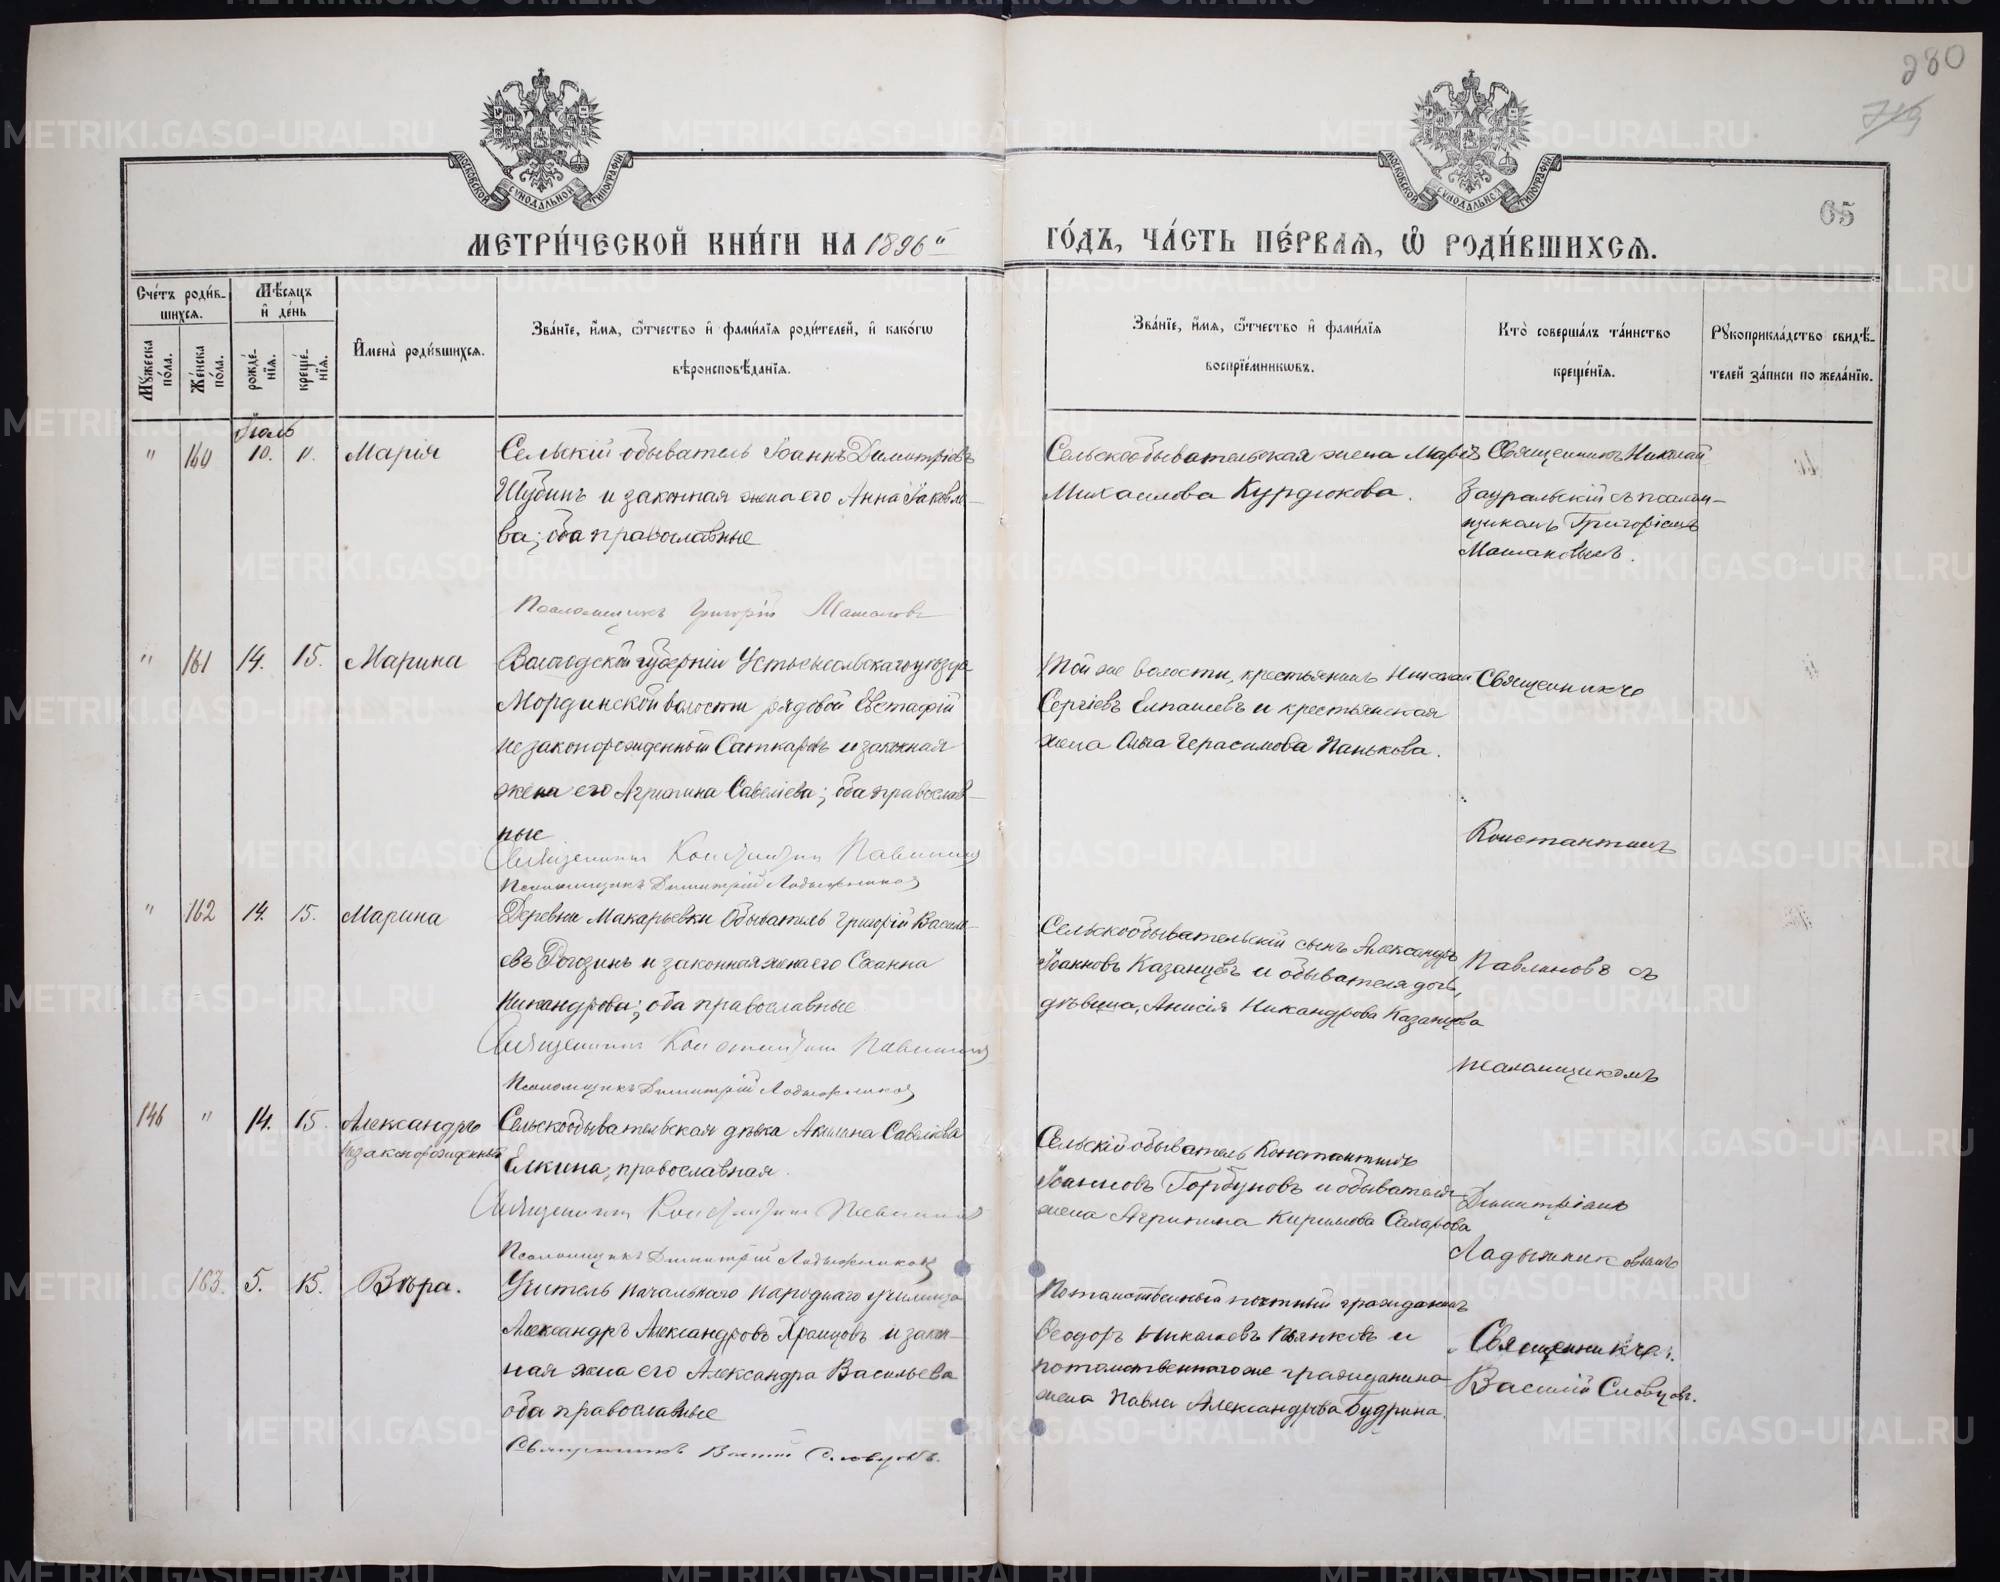 280
719
65
МОСКОВСКОЙ СѴНОДАЛЬНОЙ ТИПОГРАФІИ
МОСКОВСКОЙ СѴНОДАЛЬНОЙ ТИПОГРАФІИ
МЕТРИ́ЧЕСКОЙ КНИ́ГИ НА 1896
ГО́ДЪ, ЧА́СТЬ ПЕ́РВАѦ, Ѡ РОДИ́ВШИХСѦ.
Сче́тъ роди́в-
шихсѧ.
Мꙋжеска по́ла.
Же́нска по́ла.
Мѣ́сѧцъ и де́нь
рожде́-нїѧ.
креще́-нїѧ.
Имена̀ роди́вшихсѧ.
Зва́нїе, и́мѧ, ѻ҆́тчество и фами́лїѧ роди́телей, и како́гѡ
вѣроисповѣ́данїѧ.
Зва́нїе, и́мѧ, ѻ҆́тчество и фами́лїѧ
воспрїе́мникѡвъ.
Кто̀ соверша́лъ та́инство
креще́нїѧ.
Рꙋкоприкла́дство свидѣ́-
телей за́писи по жела́нїю.
Іюль
" 160 10. 11. Марія
Сельскій обыватель Іоаннъ Димитріевъ
Шубинъ и законная жена его Анна Іаковле-
ва; оба православные
Псаломщикъ Григорій Машановъ
Сельскообывательская жена Марія
Михаилова Курдюкова.
Священникъ Николай
Зауральскій съ псалом-
щикомъ Григоріемъ
Машановымъ.
" 161 14. 15. Марина
Вологодской губерніи Устьсысольскаго уѣзда
Мординской волости рядовой Евстафій
незаконорожденный Саткаровъ и законная
жена его Агрипина Савеліева; оба православ-
ные
Священникъ Константинъ Павлиновъ
Псаломщикъ Димитрій Ладыжниковъ
Той же волости, крестьянинъ Николай
Сергіевъ и крестьянская
жена Герасимова Панькова.
Священникъ
Константинъ
" 162 14. 15. Марина
Деревни Макарьевки обыватель Григорій Василі-
евъ Рогозинъ и законная жена его
Никандрова; оба православные
Священникъ Константинъ Павлиновъ
Псаломщикъ Димитрій Ладыжниковъ
Сельскообывательскій сынъ Александръ
Іоанновъ Казанцевъ и обывателя дочь,
дѣвица, Анисія Никандрова Казанцева
Павлиновъ съ
псаломщикомъ
146 " 14. 15. Александръ
незаконорожденный
Сельскообывательская дѣвка Акилина Савеліева
Елкина, православная.
Священникъ Константинъ Павлиновъ
Псаломщикъ Димитрій Ладыжниковъ
Сельскій обыватель Константинъ
Іоанновъ Горбуновъ и обывателя
жена Агрипина Кирилова Сахарова
Димитріемъ
Ладыжниковымъ
163. 5. 15. Вѣра.
Учитель начальнаго народнаго училища
Александръ Александровъ Храмцовъ и закон-
ная жена его Александра Васильева
оба православные
Священникъ Василій Словцовъ.
Потомственный почетный гражданинъ
Ѳеодоръ Пьянковъ и
потомственнаго же гражданина
жена Павла Александрова Будрина.
Священникъ
Василій Словцовъ.